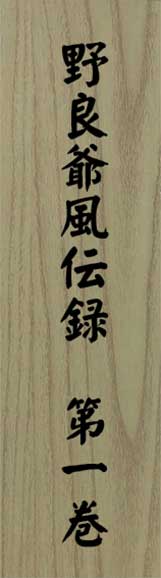 野良爺風伝録　第一巻